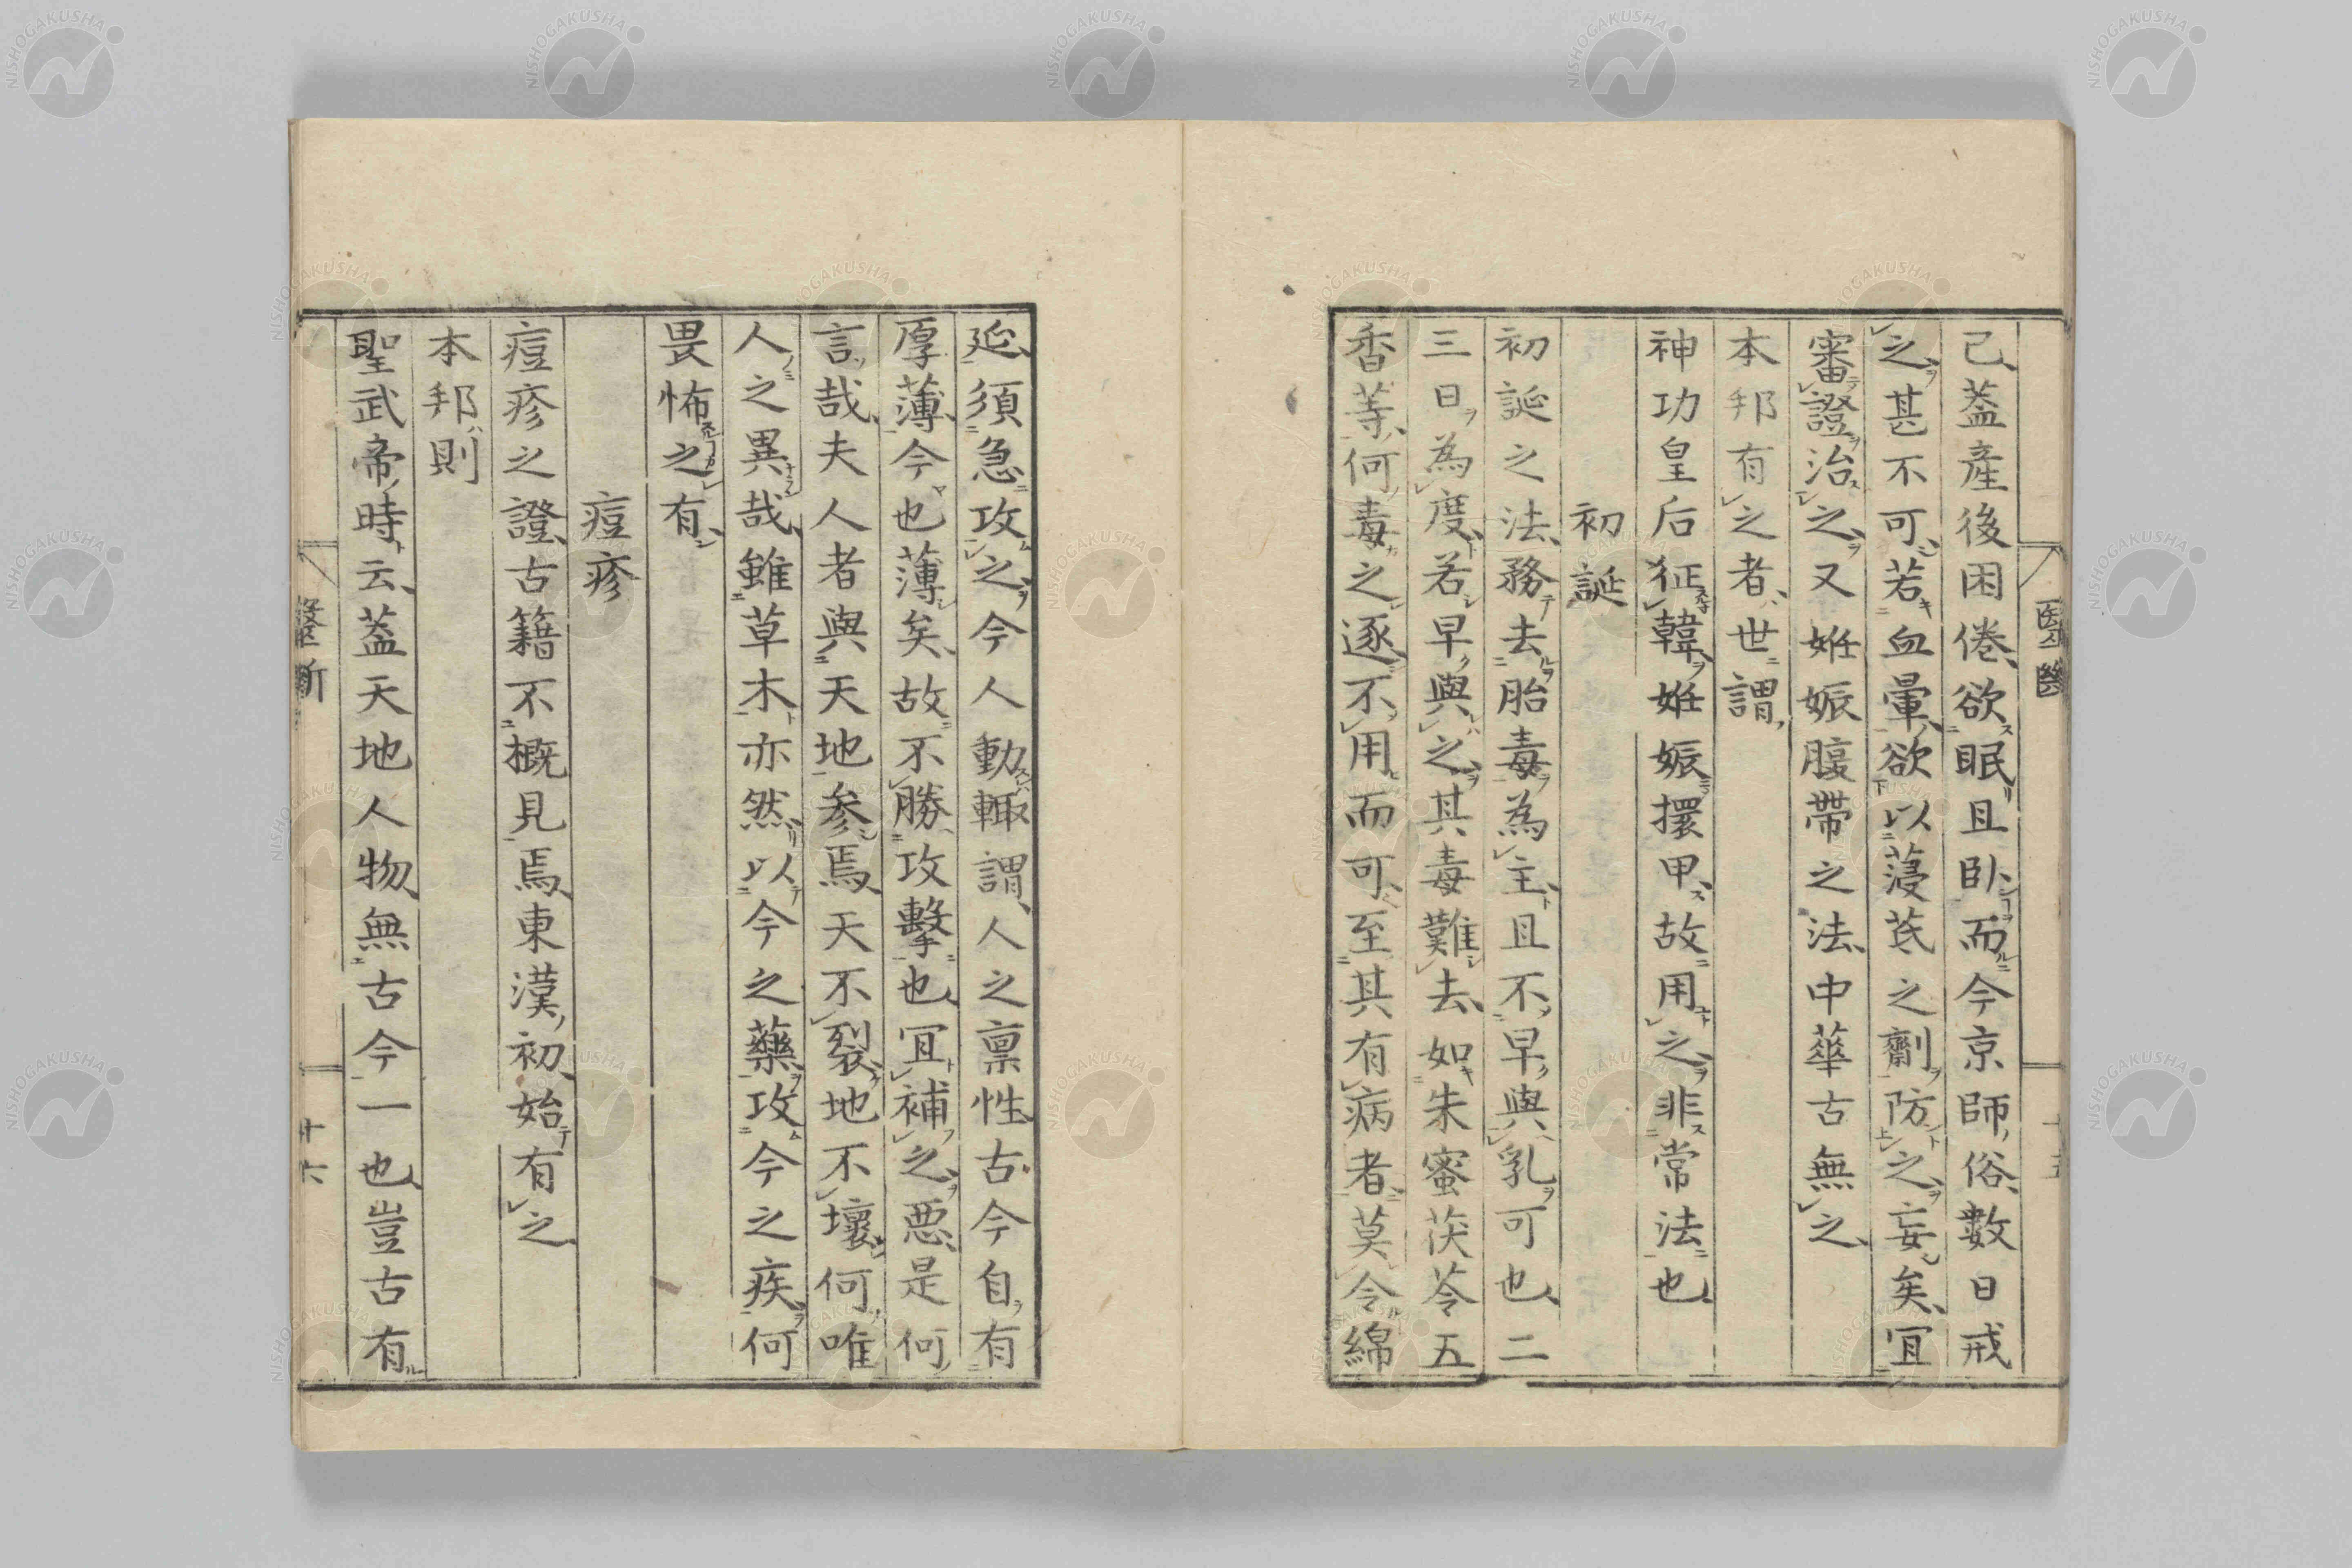 己蓋産後困倦欲眠且臥而今京師俗數日戒
之甚不可若血暈欲以蓡芪之劑防之妄矣宜
審證治之又姙娠腹帶之法中華古無之
本邦有之者世謂
神功皇后征韓姙娠擐甲故用之非常法也
初誕
初誕之法務去胎毒為主且不早與乳可也二
三日為度若早與之其毒難去如朱蜜茯苓五
香等何毒之逐不用而可至其有病者莫令綿
延須急攻之今人動輙謂人之稟性古今自有
厚薄今也薄矣故不勝攻擊也冝補之惡是何
言哉夫人者與天地参焉天不裂地不壞何唯
人之異哉雖草木亦然以今之藥攻今之疾何
畏怖之有
痘疹
痘疹之證古籍不概見焉東漢初始有之
本邦則
聖武帝時云蓋天地人物無古今一也豈古有
醫斷
十六
NISHOGAKUSHA